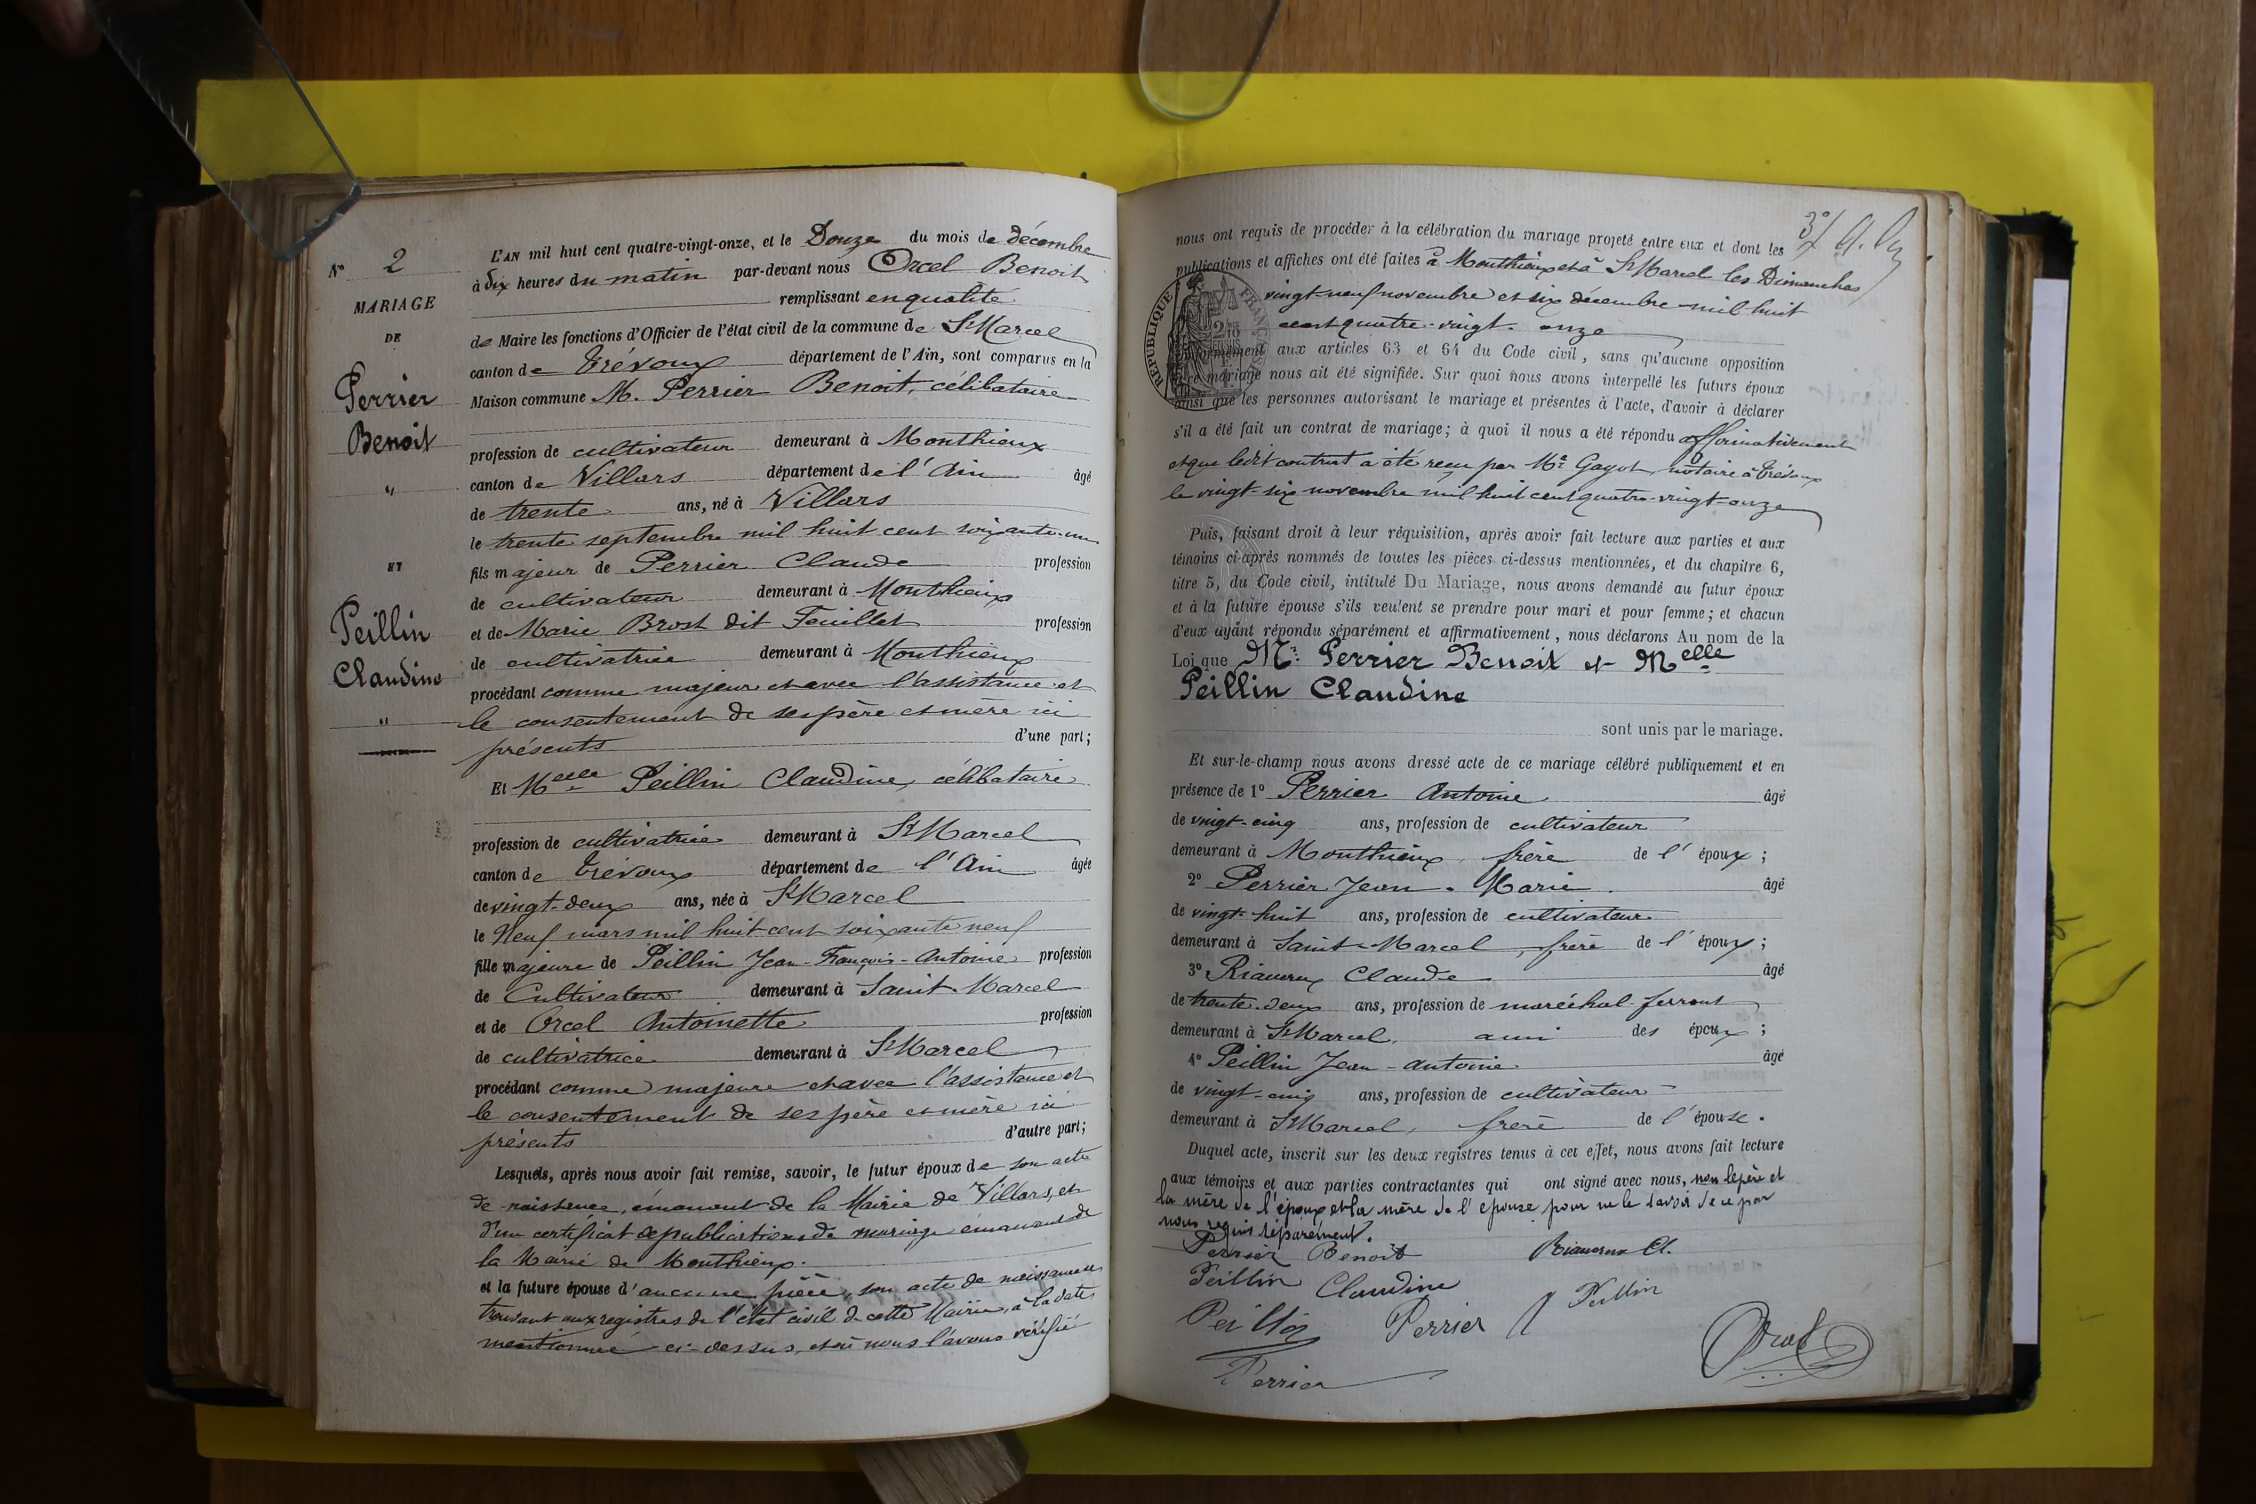 N° 2
MARIAGE
DE
Perrier
Benoit
"
ET
Peillin
Claudine
"
L'AN mil huit cent quatre-vingt-onze, et le Douze du mois de décembre
à dix heures du matin par-devant nous Orcel Benoit
remplissant en qualité
de Maire les fonctions d'Officier de l'état civil de la commune de St Marcel
canton de Trévoux département de l'Ain, sont comparus en la
Maison commune M. Perrier Benoit, célibataire
profession de cultivateur demeurant à Monthieux
canton de Villars département de l'Ain âgé
de trente ans, né à Villars
le trente septembre mil huit cent soixante-un
fils majeur de Perrier Claude profession
de cultivateur demeurant à Monthieux
et de Marie Brost dit Feuillet profession
de cultivatrice demeurant à Monthieux
procédant comme majeur et avec l'assistance et
le consentement de ses père et mère ici
présents d'une part;
Et Melle Peillin Claudine, célibataire
profession de cultivatrice demeurant à St Marcel
canton de Trévoux département de l'Ain âgée
de vingt-deux ans, née à St Marcel
le Neuf mars mil huit cent soixante neuf
fille majeure de Peillin Jean-François-Antoine profession
de Cultivateur demeurant à Saint Marcel
et de Orcel Antoinette profession
de cultivatrice demeurant à St Marcel
procédant comme majeure et avec l'assistance et
le consentement de ses père et mère ici
présents d'autre part;
Lesquels, après nous avoir fait remise, savoir, le futur époux de son acte
de naissance, émanant de la Mairie de Villars, et
d'un certificat de publications de mariage émanant de
la Mairie de Monthieux.
et la future épouse d'aucune pièce, son acte de naissance se
trouvant aux registres de l'état civil de cette Mairie, à la date
mentionnée ci-dessus, et où nous l'avons vérifié
3°
nous ont requis de procéder à la célébration du mariage projeté entre eux et dont les
publications et affiches ont été faites à Monthieux et à St Marcel les Dimanches
vingt-neuf novembre et six décembre mil huit
cent quatre-vingt-onze
RÉPUBLIQUE FRANÇAISE
conformément aux articles 63 et 64 du Code civil, sans qu'aucune opposition
à ce mariage nous ait été signifiée. Sur quoi nous avons interpellé les futurs époux
ainsi que les personnes autorisant le mariage et présentes à l'acte, d'avoir à déclarer
s'il a été fait un contrat de mariage; à quoi il nous a été répondu affirmativement
et que ledit contrat a été reçu par Me Gayot, notaire à Trévoux
le vingt-six novembre mil huit cent quatre-vingt-onze
Puis, faisant droit à leur réquisition, après avoir fait lecture aux parties et aux
témoins ci-après nommés de toutes les pièces ci-dessus mentionnées, et du chapitre 6,
titre 5, du Code civil, intitulé Du Mariage, nous avons demandé au futur époux
et à la future épouse s'ils veulent se prendre pour mari et pour femme; et chacun
d'eux ayant répondu séparément et affirmativement, nous déclarons Au nom de la
Loi que Mr. Perrier Benoit et Melle
Peillin Claudine
sont unis par le mariage.
Et sur-le-champ nous avons dressé acte de ce mariage célébré publiquement et en
présence de 1° Perrier Antoine âgé
de vingt-cinq ans, profession de cultivateur
demeurant à Monthieux, frère de l'époux;
2° Perrier Jean-Marie âgé
de vingt-huit ans, profession de cultivateur
demeurant à Saint-Marcel, frère de l'époux;
3° Riaucrux Claude âgé
de trente-deux ans, profession de maréchal-ferrant
demeurant à St Marcel, ami des époux;
4° Peillin Jean-Antoine âgé
de vingt-cinq ans, profession de cultivateur
demeurant à St Marcel, frère de l'épouse.
Duquel acte, inscrit sur les deux registres tenus à cet effet, nous avons fait lecture
aux témoins et aux parties contractantes qui ont signé avec nous, non le père et
la mère de l'époux et la mère de l'épouse pour ne le savoir de ce par
nous requis séparément.
Perrier Benoit
Peillin Claudine
Peillin
Perrier
Peillin
Perrier
Orcel